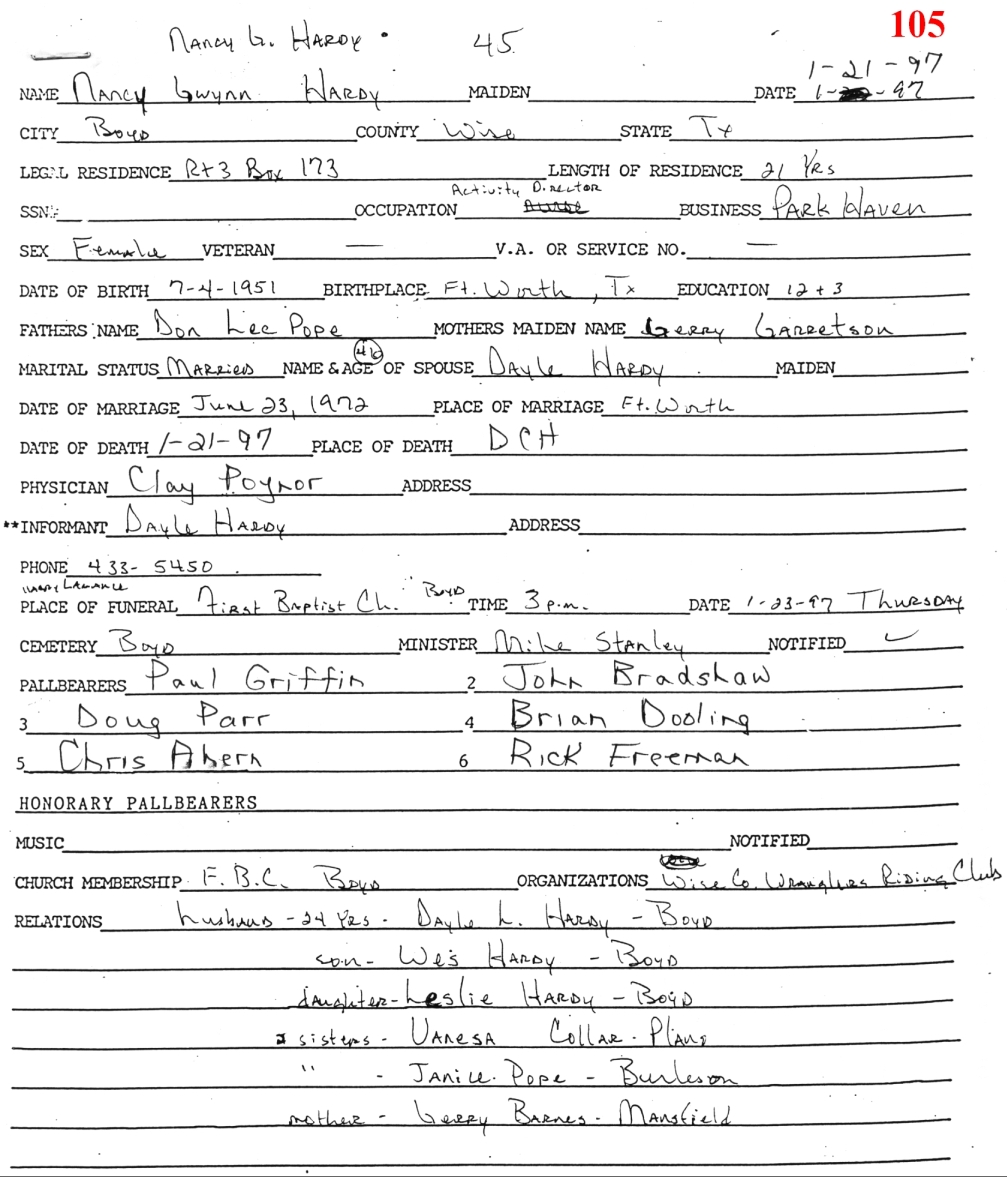 105
Nancy G. Hardy 45
1-21-97
NAME Nancy Gwynn Hardy MAIDEN DATE 1- -97
CITY Boyd COUNTY Wise STATE Tx
LEGAL RESIDENCE Rt 3 Box 173 LENGTH OF RESIDENCE 21 Yrs
Activity Director
SSN: OCCUPATION Nurse BUSINESS Park Haven
SEX Female VETERAN — V.A. OR SERVICE NO. —
DATE OF BIRTH 7-4-1951 BIRTHPLACE Ft. Worth, Tx EDUCATION 12 + 3
FATHERS NAME Don Lee Pope MOTHERS MAIDEN NAME Gerry Garretson
46
MARITAL STATUS Married NAME & AGE OF SPOUSE Dayle Hardy MAIDEN
DATE OF MARRIAGE June 23, 1972 PLACE OF MARRIAGE Ft. Worth
DATE OF DEATH 1-21-97 PLACE OF DEATH DCH
PHYSICIAN Clay Poynor ADDRESS
**INFORMANT Dayle Hardy ADDRESS
PHONE 433-5450
PLACE OF FUNERAL First Baptist Ch. Boyd TIME 3 p.m. DATE 1-23-97 Thursday
CEMETERY Boyd MINISTER Mike Stanley NOTIFIED ✓
PALLBEARERS Paul Griffin 2 John Bradshaw
3 Doug Parr 4 Brian Dooling
5 Chris Ahern 6 Rick Freeman
HONORARY PALLBEARERS
MUSIC NOTIFIED
CHURCH MEMBERSHIP F.B.C. Boyd ORGANIZATIONS Wise Co. Wranglers Riding Club
RELATIONS husband - 24 Yrs - Dayle L. Hardy - Boyd
son - Wes Hardy - Boyd
daughter - Leslie Hardy - Boyd
sisters - Vanesa Collar - Plano
" - Janice Pope - Burleson
mother - Gerry Barnes - Mansfield